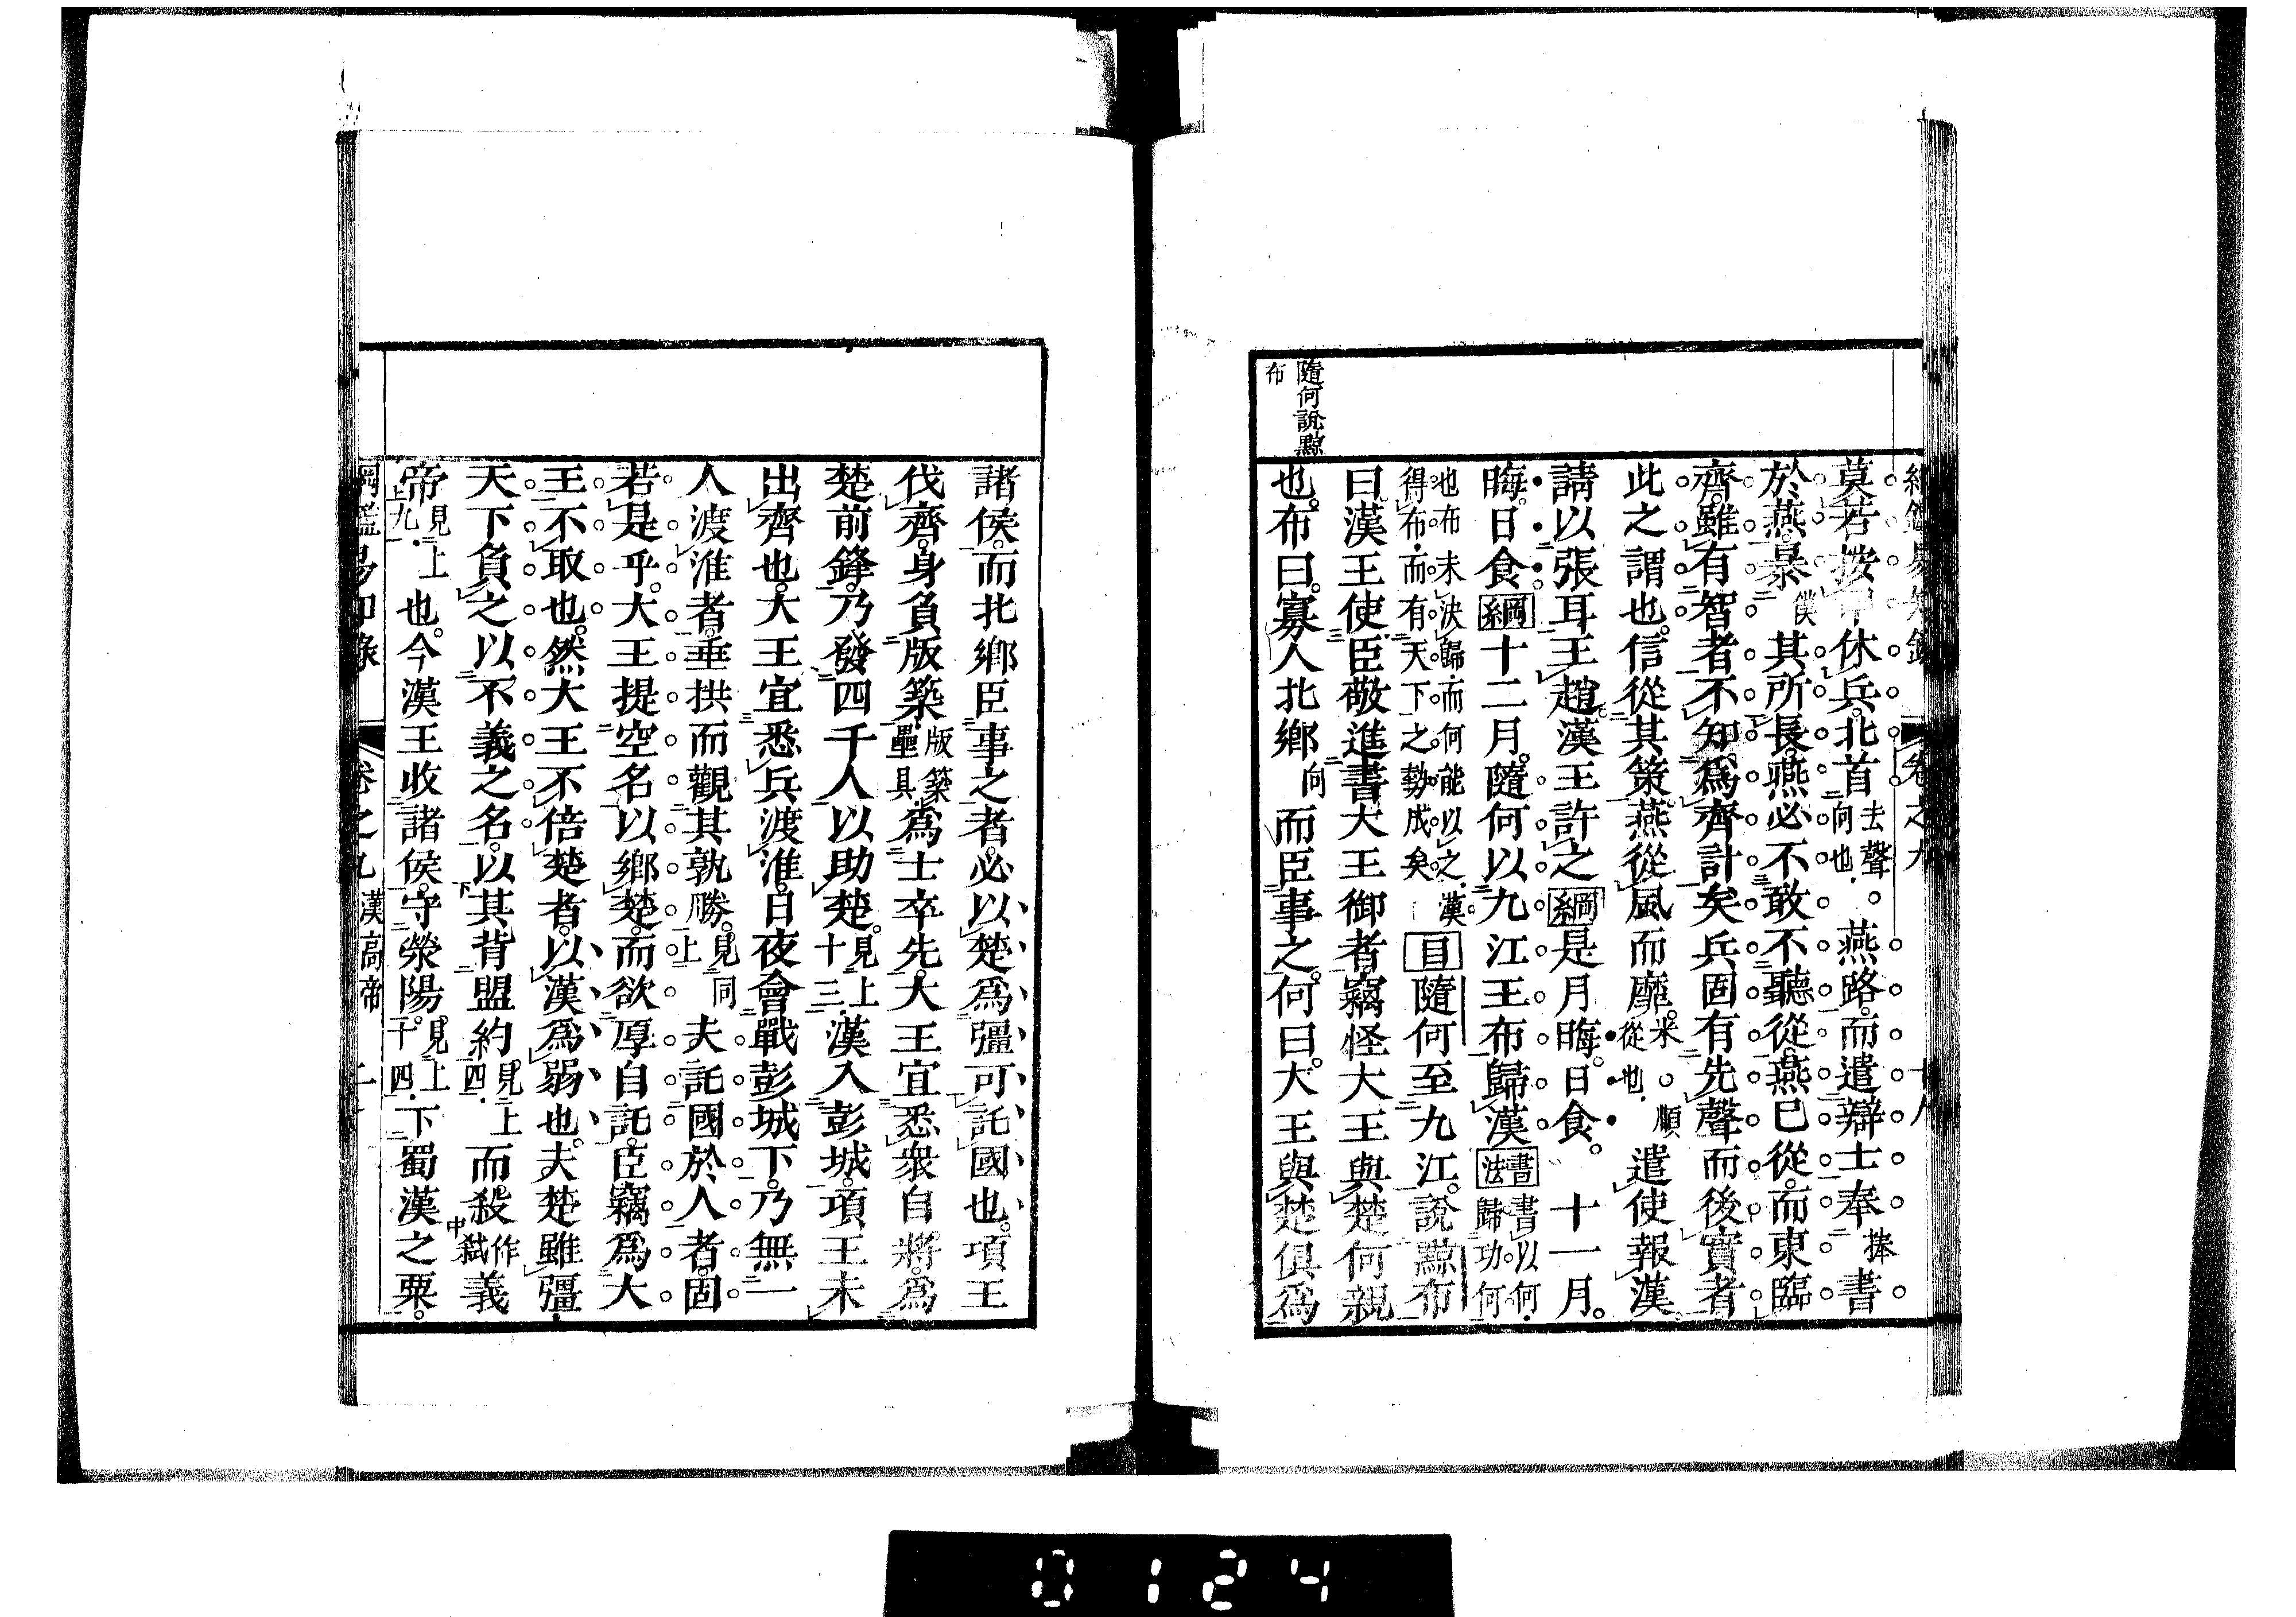 綱鑑易知錄　卷之九　十八
莫若按甲休兵。北首去聲向也。燕路。而遣辯士奉捧書
於燕。暴僕其所長。燕必不敢不聽從。燕已從。而東臨
齊。雖有智者。不知爲齊計矣。兵固有先聲而後實者。
此之謂也。信從其策。燕從風而靡。米。順從也。遣使報漢。
請以張耳王趙。漢王許之。綱是月晦。日食。十一月。
晦。日食。綱十二月。隨何以九江王布歸漢。書法書以何。歸功何
也。布未決歸。而何能以之。漢得布。而有天下之勢成矣。目隨何至九江。說黥布
曰。漢王使臣敬進書大王御者。竊怪大王與楚何親
也。布曰。寡人北鄉向而臣事之。何曰。大王與楚俱爲
隨何說黥
布
諸侯。而北鄉臣事之者。必以楚爲彊可託國也。項王
伐齊。身負版築。版築壘具。爲士卒先。大王宜悉衆自將。爲
楚前鋒。乃發四千人以助楚。見上十三。漢入彭城。項王未
出齊也。大王宜悉兵渡淮。日夜會戰彭城下。乃無一
人渡淮者。垂拱而觀其孰勝。見同上夫託國於人者。固
若是乎。大王提空名以鄉楚。而欲厚自託。臣竊爲大
王不取也。然大王不倍楚者。以漢爲弱也。夫楚雖彊。
天下負之以不義之名。以其背盟約。見上四。而殺作弒義
帝見上九。也。今漢王收諸侯。守滎陽。見上十四。下蜀漢之粟。
綱鑑易知錄　卷之九　漢高帝